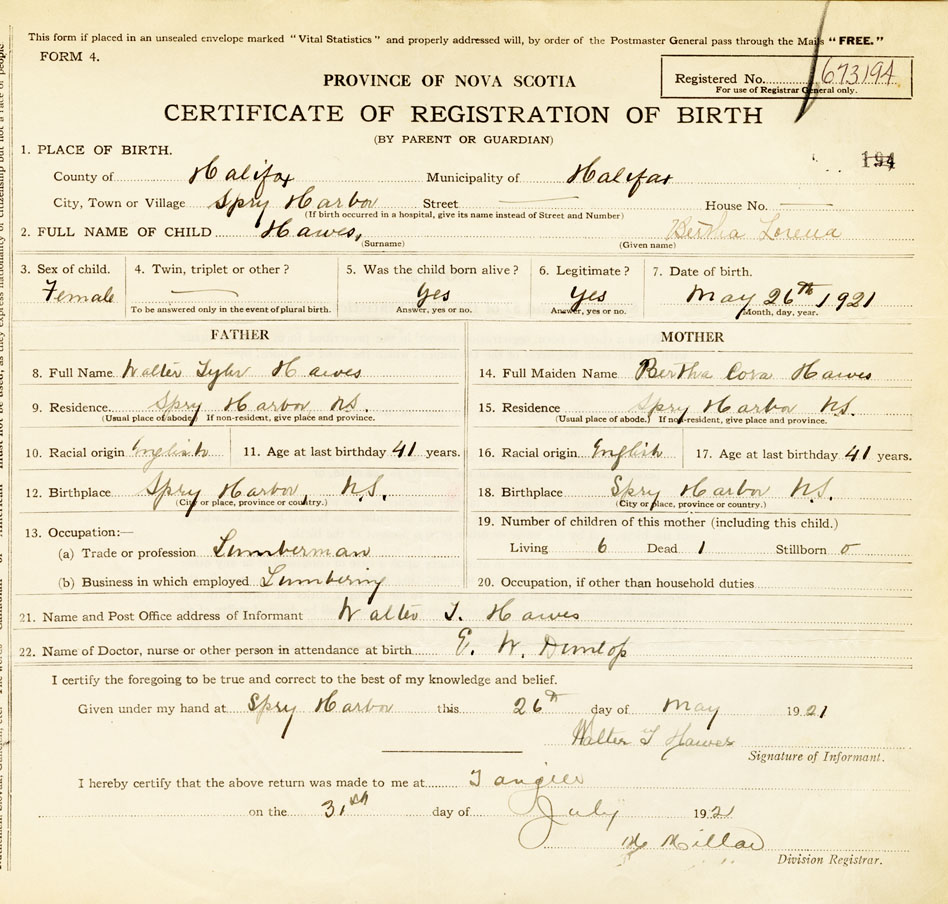 This form if placed in an unsealed envelope marked "Vital Statistics" and properly addressed will, by order of the Postmaster General pass through the Mails "FREE."
FORM 4.
PROVINCE OF NOVA SCOTIA
Registered No. 673194
For use of Registrar General only.
CERTIFICATE OF REGISTRATION OF BIRTH
(BY PARENT OR GUARDIAN)
194
1. PLACE OF BIRTH.
County of Halifax Municipality of Halifax
City, Town or Village Spry Harbor Street — House No. —
(If birth occurred in a hospital, give its name instead of Street and Number)
2. FULL NAME OF CHILD Hawes, Bertha Lorena
(Surname) (Given name)
3. Sex of child. 4. Twin, triplet or other? 5. Was the child born alive? 6. Legitimate? 7. Date of birth.
Female — Yes Yes May 26th 1921
To be answered only in the event of plural birth. Answer, yes or no. Answer, yes or no. Month, day, year.
FATHER MOTHER
8. Full Name Walter Tyler Hawes 14. Full Maiden Name Bertha Cora Hawes
9. Residence Spry Harbor N.S. 15. Residence Spry Harbor N.S.
(Usual place of abode.) If non-resident, give place and province. (Usual place of abode.) If non-resident, give place and province.
10. Racial origin English 11. Age at last birthday 41 years. 16. Racial origin English 17. Age at last birthday 41 years.
12. Birthplace Spry Harbor, N.S. 18. Birthplace Spry Harbor N.S.
(City or place, province or country.) (City or place, province or country.)
13. Occupation:— 19. Number of children of this mother (including this child.)
(a) Trade or profession Lumberman Living 6 Dead 1 Stillborn 0
(b) Business in which employed Lumbering 20. Occupation, if other than household duties
21. Name and Post Office address of Informant Walter T. Hawes
22. Name of Doctor, nurse or other person in attendance at birth E. W. Dunlop
I certify the foregoing to be true and correct to the best of my knowledge and belief.
Given under my hand at Spry Harbor this 26th day of May 1921
Walter T Hawes
Signature of Informant.
I hereby certify that the above return was made to me at Tangier
on the 31st day of July 1921
Millar
Division Registrar.